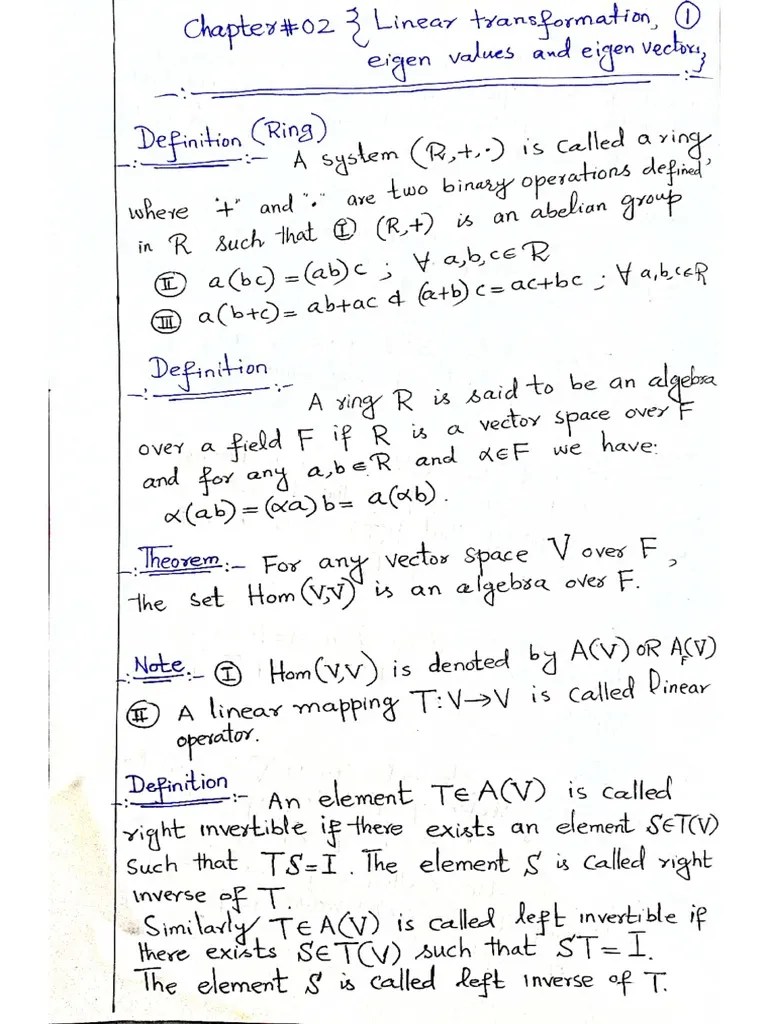 Chapter#02 { Linear transformation, ①
eigen values and eigen vectors}
Definition (Ring)
:- A system (R,+,·) is called a ring,
where "+" and "·" are two binary operations defined
in R such that Ⓘ (R,+) is an abelian group
Ⓘ Ⓘ a(bc) = (ab)c ; ∀ a,b,c∈R
Ⓘ Ⓘ Ⓘ a(b+c) = ab+ac & (a+b)c = ac+bc ; ∀ a,b,c∈R
Definition
:- A ring R is said to be an algebra
over a field F if R is a vector space over F
and for any a,b∈R and α∈F we have:
α(ab) = (αa)b = a(αb).
Theorem:- For any vector space V over F,
the set Hom(V,V) is an algebra over F.
Note:- Ⓘ Hom(V,V) is denoted by A(V) OR A_F(V)
Ⓘ Ⓘ A linear mapping T:V→V is called linear
operator.
Definition:- An element T∈A(V) is called
right invertible if there exists an element S∈T(V)
Such that TS=I. The element S is called right
inverse of T.
Similarly T∈A(V) is called left invertible if
there exists S∈T(V) such that ST=I.
The element S is called left inverse of T.